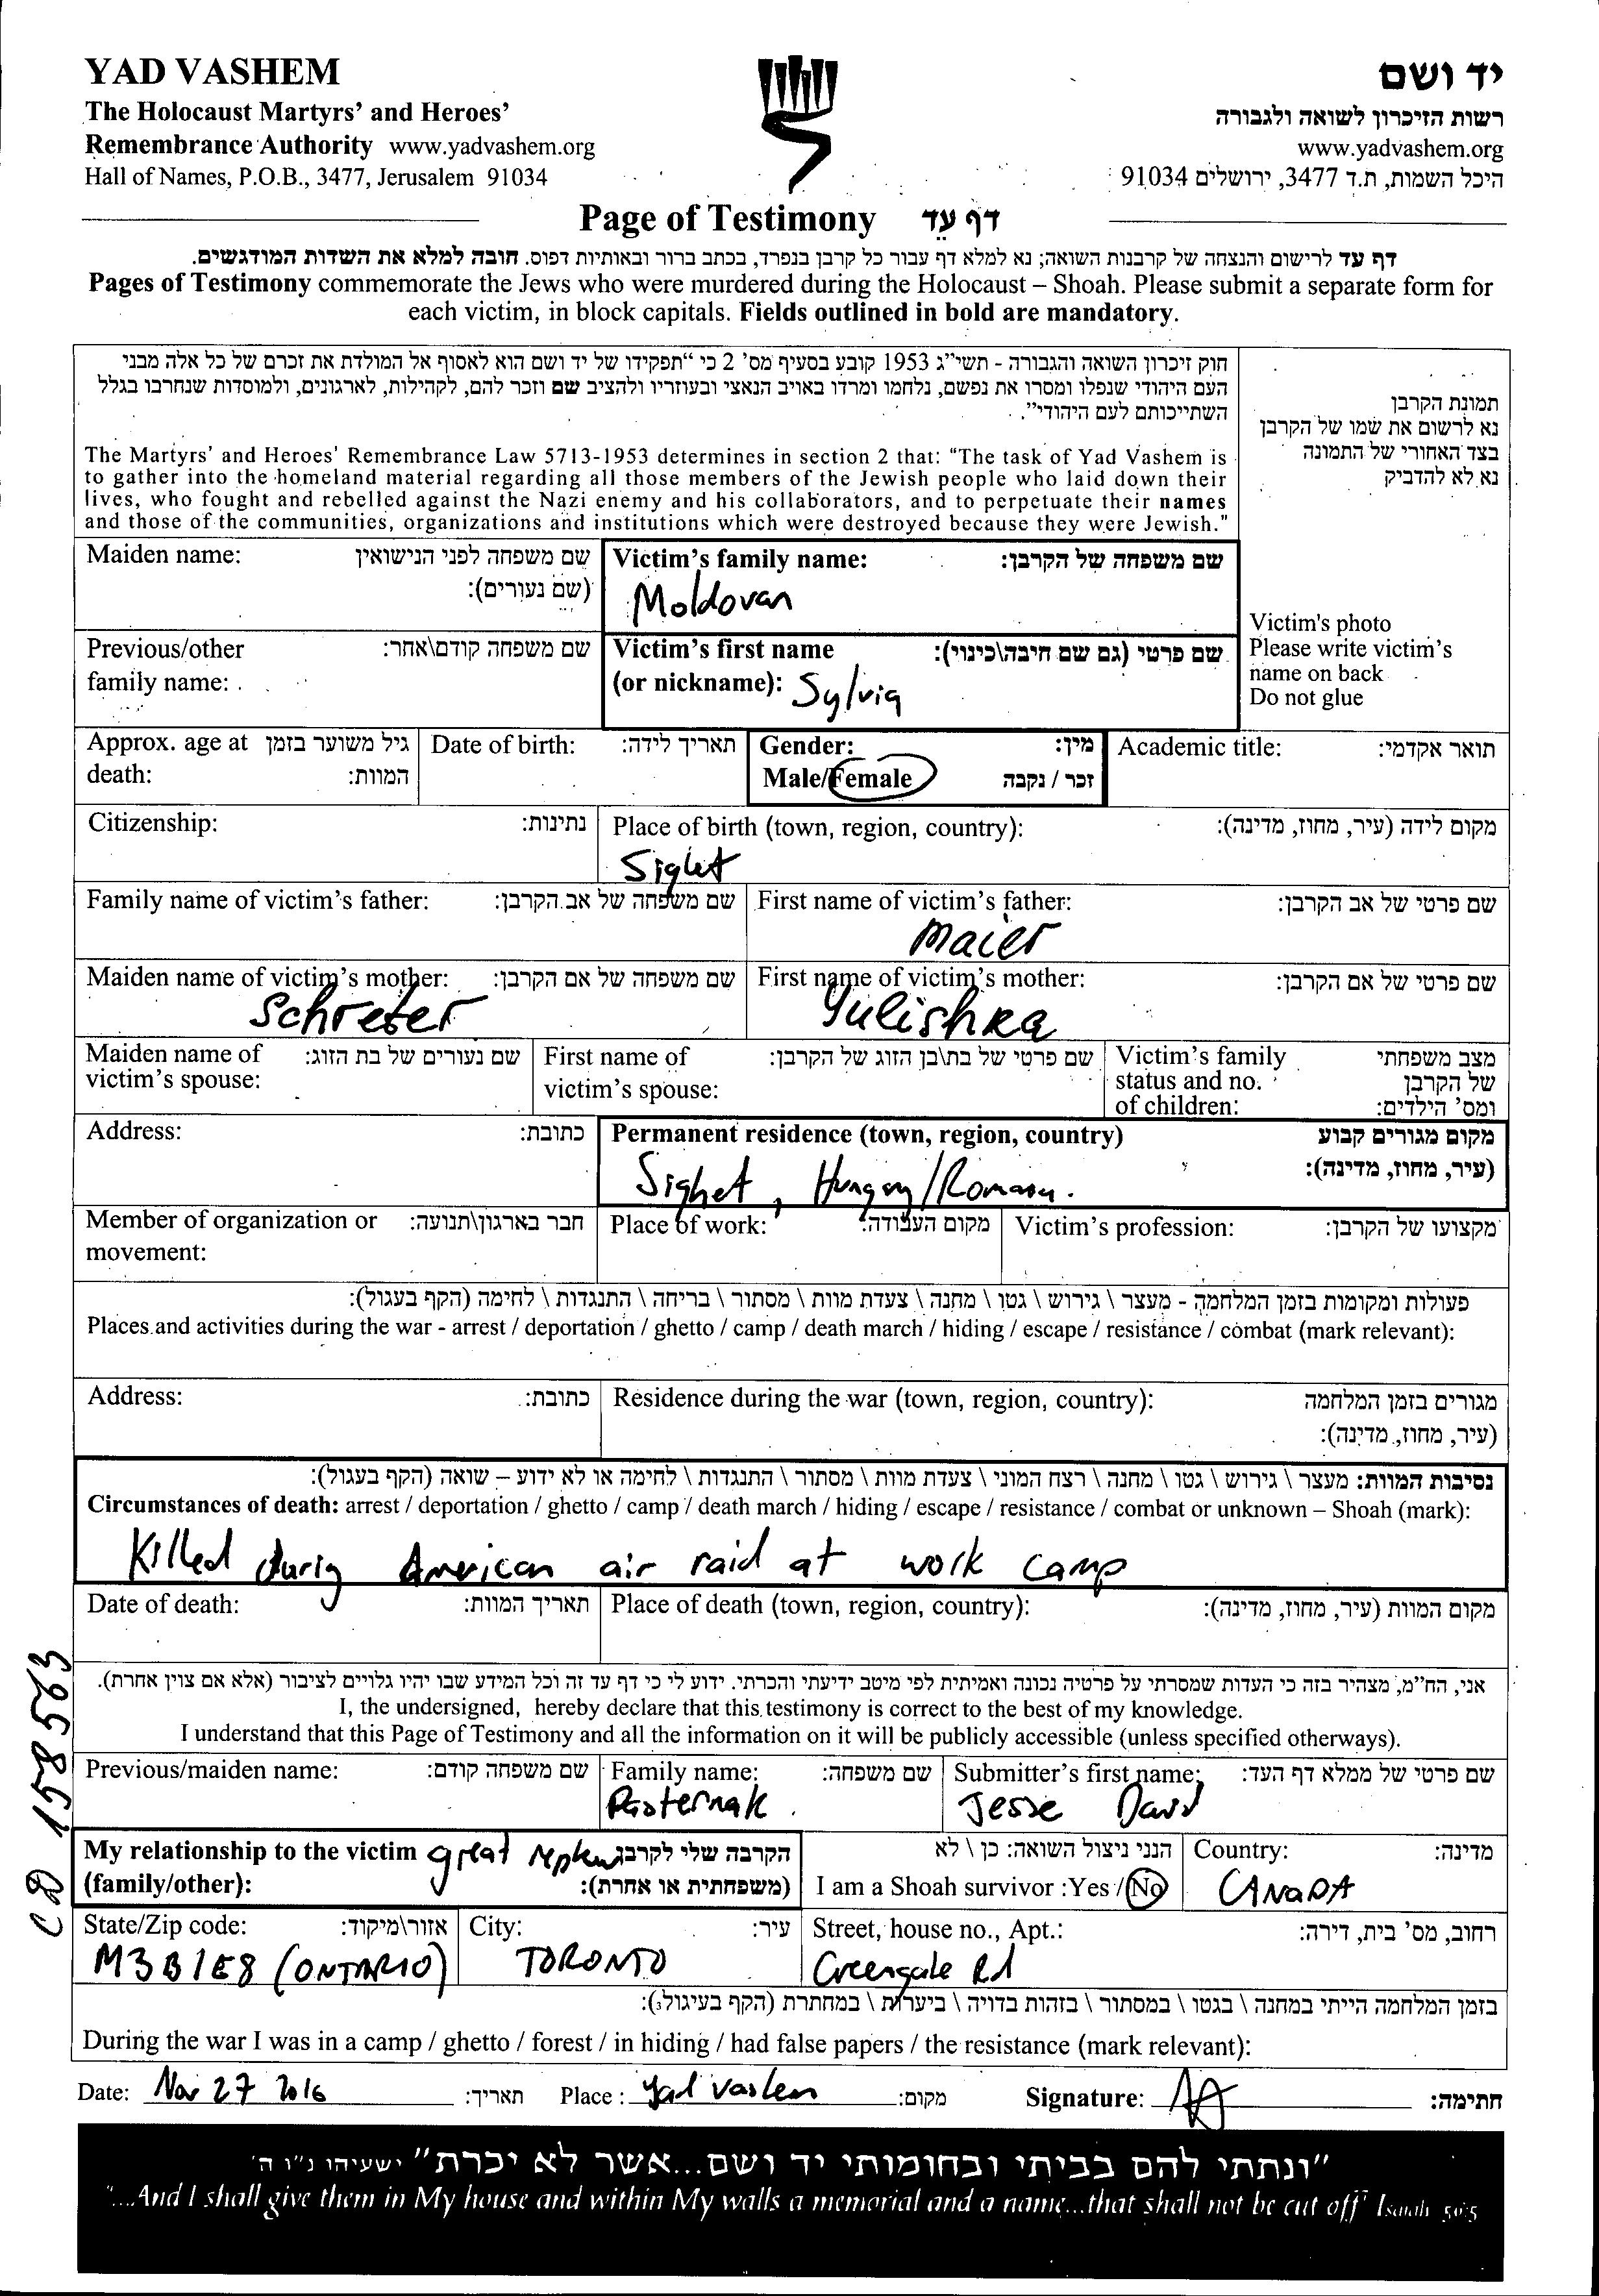 YAD VASHEM
The Holocaust Martyrs' and Heroes'
Remembrance Authority www.yadvashem.org
Hall of Names, P.O.B., 3477, Jerusalem 91034
יד ושם
רשות הזיכרון לשואה ולגבורה
www.yadvashem.org
היכל השמות, ת.ד 3477, ירושלים 91034
Page of Testimony דף עֵד
דף עד לרישום והנצחה של קרבנות השואה; נא למלא דף עבור כל קרבן בנפרד, בכתב ברור ובאותיות דפוס. חובה למלא את השדות המודגשים.
Pages of Testimony commemorate the Jews who were murdered during the Holocaust – Shoah. Please submit a separate form for
each victim, in block capitals. Fields outlined in bold are mandatory.
חוק זיכרון השואה והגבורה - תשי"ג 1953 קובע בסעיף מס' 2 כי "תפקידו של יד ושם הוא לאסוף אל המולדת את זכרם של כל אלה מבני
העם היהודי שנפלו ומסרו את נפשם, נלחמו ומרדו באויב הנאצי ובעוזריו ולהציב שם וזכר להם, לקהילות, לארגונים, ולמוסדות שנחרבו בגלל
השתייכותם לעם היהודי".
The Martyrs' and Heroes' Remembrance Law 5713-1953 determines in section 2 that: "The task of Yad Vashem is
to gather into the homeland material regarding all those members of the Jewish people who laid down their
lives, who fought and rebelled against the Nazi enemy and his collaborators, and to perpetuate their names
and those of the communities, organizations and institutions which were destroyed because they were Jewish."
תמונת הקרבן
נא לרשום את שמו של הקרבן
בצד האחורי של התמונה
נא לא להדביק
Victim's photo
Please write victim's
name on back
Do not glue
Maiden name: שם משפחה לפני הנישואין
(שם נעורים):
Victim's family name: שם משפחה של הקרבן:
Moldovan
Previous/other שם משפחה קודם\אחר:
family name:
Victim's first name שם פרטי (גם שם חיבה\כינוי):
(or nickname): Sylvia
Approx. age at גיל משוער בזמן
death: המוות:
Date of birth: תאריך לידה:
Gender: מין:
Male/Female זכר / נקבה
Academic title: תואר אקדמי:
Citizenship: נתינות:
Place of birth (town, region, country): מקום לידה (עיר, מחוז, מדינה):
Sighet
Family name of victim's father: שם משפחה של אב הקרבן:
First name of victim's father: שם פרטי של אב הקרבן:
Maier
Maiden name of victim's mother: שם משפחה של אם הקרבן:
Schreter
First name of victim's mother: שם פרטי של אם הקרבן:
Yulishka
Maiden name of שם נעורים של בת הזוג:
victim's spouse:
First name of שם פרטי של בת\בן הזוג של הקרבן:
victim's spouse:
Victim's family מצב משפחתי
status and no. של הקרבן
of children: ומס' הילדים:
Address: כתובת:
Permanent residence (town, region, country) מקום מגורים קבוע
(עיר, מחוז, מדינה):
Sighet, Hungary/Romania.
Member of organization or חבר בארגון\תנועה:
movement:
Place of work: מקום העבודה:
Victim's profession: מקצועו של הקרבן:
פעולות ומקומות בזמן המלחמה - מעצר \ גירוש \ גטו \ מחנה \ צעדת מוות \ מסתור \ בריחה \ התנגדות \ לחימה (הקף בעגול):
Places and activities during the war - arrest / deportation / ghetto / camp / death march / hiding / escape / resistance / combat (mark relevant):
Address: כתובת:
Residence during the war (town, region, country): מגורים בזמן המלחמה
(עיר, מחוז, מדינה):
נסיבות המוות: מעצר \ גירוש \ גטו \ מחנה \ רצח המוני \ צעדת מוות \ מסתור \ התנגדות \ לחימה או לא ידוע – שואה (הקף בעגול):
Circumstances of death: arrest / deportation / ghetto / camp / death march / hiding / escape / resistance / combat or unknown – Shoah (mark):
Killed during American air raid at work camp
Date of death: תאריך המוות:
Place of death (town, region, country): מקום המוות (עיר, מחוז, מדינה):
אני, הח"מ, מצהיר בזה כי העדות שמסרתי על פרטיה נכונה ואמיתית לפי מיטב ידיעתי והכרתי. ידוע לי כי דף עד זה וכל המידע שבו יהיו גלויים לציבור (אלא אם צוין אחרת).
I, the undersigned, hereby declare that this testimony is correct to the best of my knowledge.
I understand that this Page of Testimony and all the information on it will be publicly accessible (unless specified otherways).
Previous/maiden name: שם משפחה קודם:
Family name: שם משפחה:
Pasternak
Submitter's first name: שם פרטי של ממלא דף העד:
Jesse David
My relationship to the victim great nephew הקרבה שלי לקרבן
(family/other): (משפחתית או אחרת):
הנני ניצול השואה: כן \ לא
I am a Shoah survivor :Yes / No
Country: מדינה:
CANADA
State/Zip code: אזור\מיקוד:
M3B1E8 (ONTARIO)
City: עיר:
TORONTO
Street, house no., Apt.: רחוב, מס' בית, דירה:
Greengale Rd
בזמן המלחמה הייתי במחנה \ בגטו \ במסתור \ בזהות בדויה \ ביערות \ במחתרת (הקף בעיגול):
During the war I was in a camp / ghetto / forest / in hiding / had false papers / the resistance (mark relevant):
Date: Nov 27 2016 תאריך: Place : Yad Vashem מקום: Signature: חתימה:
"ונתתי להם בביתי ובחומותי יד ושם...אשר לא יכרת" ישעיהו נ"ו ה'
"...And I shall give them in My house and within My walls a memorial and a name...that shall not be cut off" Isaiah 56:5
CD 158563